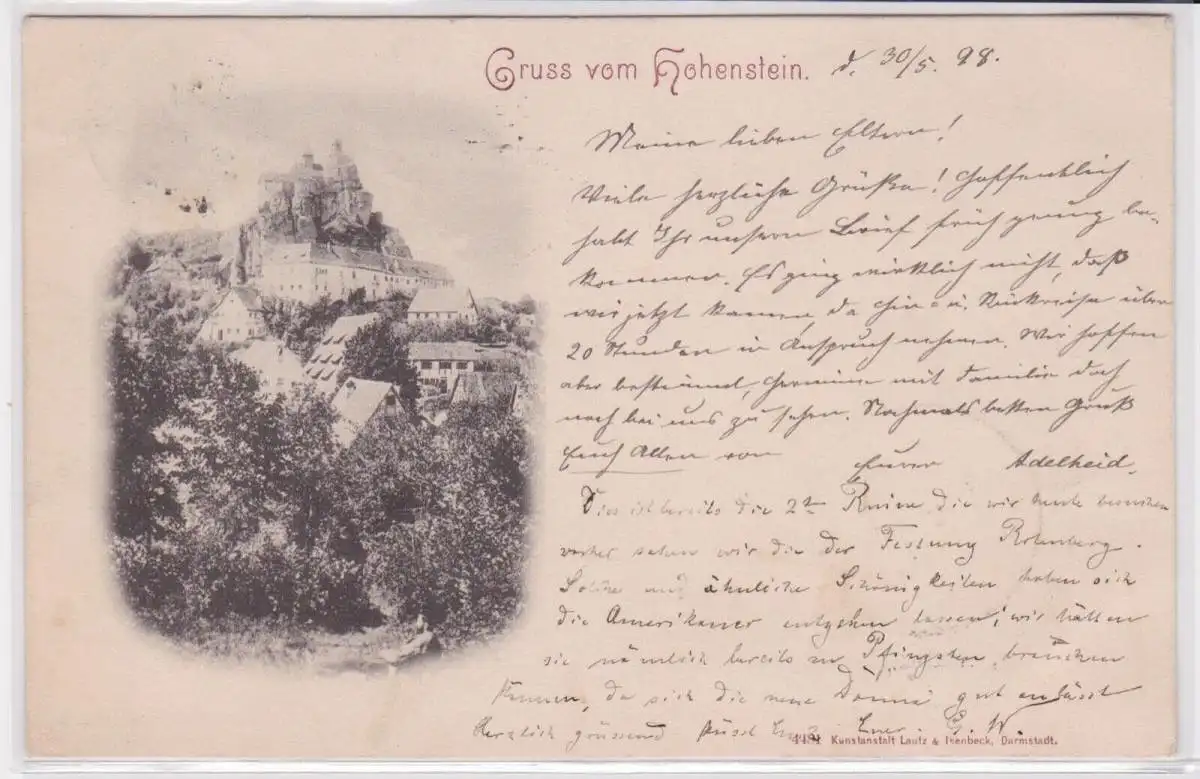 Gruss vom Hohenstein. d. 30/5. 98.
Meine lieben Eltern!
Viele herzliche Grüße! Hoffentlich
habt Ihr unsern Brief früh genug be-
kommen. Es ging wirklich nicht, daß
wir jetzt kamen da Hin- u. Rückreise über
20 Stunden in Anspruch nehmen. Wir hoffen
aber bestimmt, Hermine mit Familie doch
noch bei uns zu sehen. Nochmals besten Gruß
Euch Allen von Eurer Adelheid.
Dies ist bereits die 2te Ruine die wir heute besuchen
vorher sahen wir die der Festung Rotenberg.
Solche und ähnliche Schönigkeiten haben sich
die Amerikaner entgehen lassen; wir hätten
sie nämlich bereits zu Pfingsten brauchen
können, da sich die neue Donna gut anlässt
Herzlich grüssend küsst Euch Euer G. W.
Kunstanstalt Lautz & Isenbeck, Darmstadt.